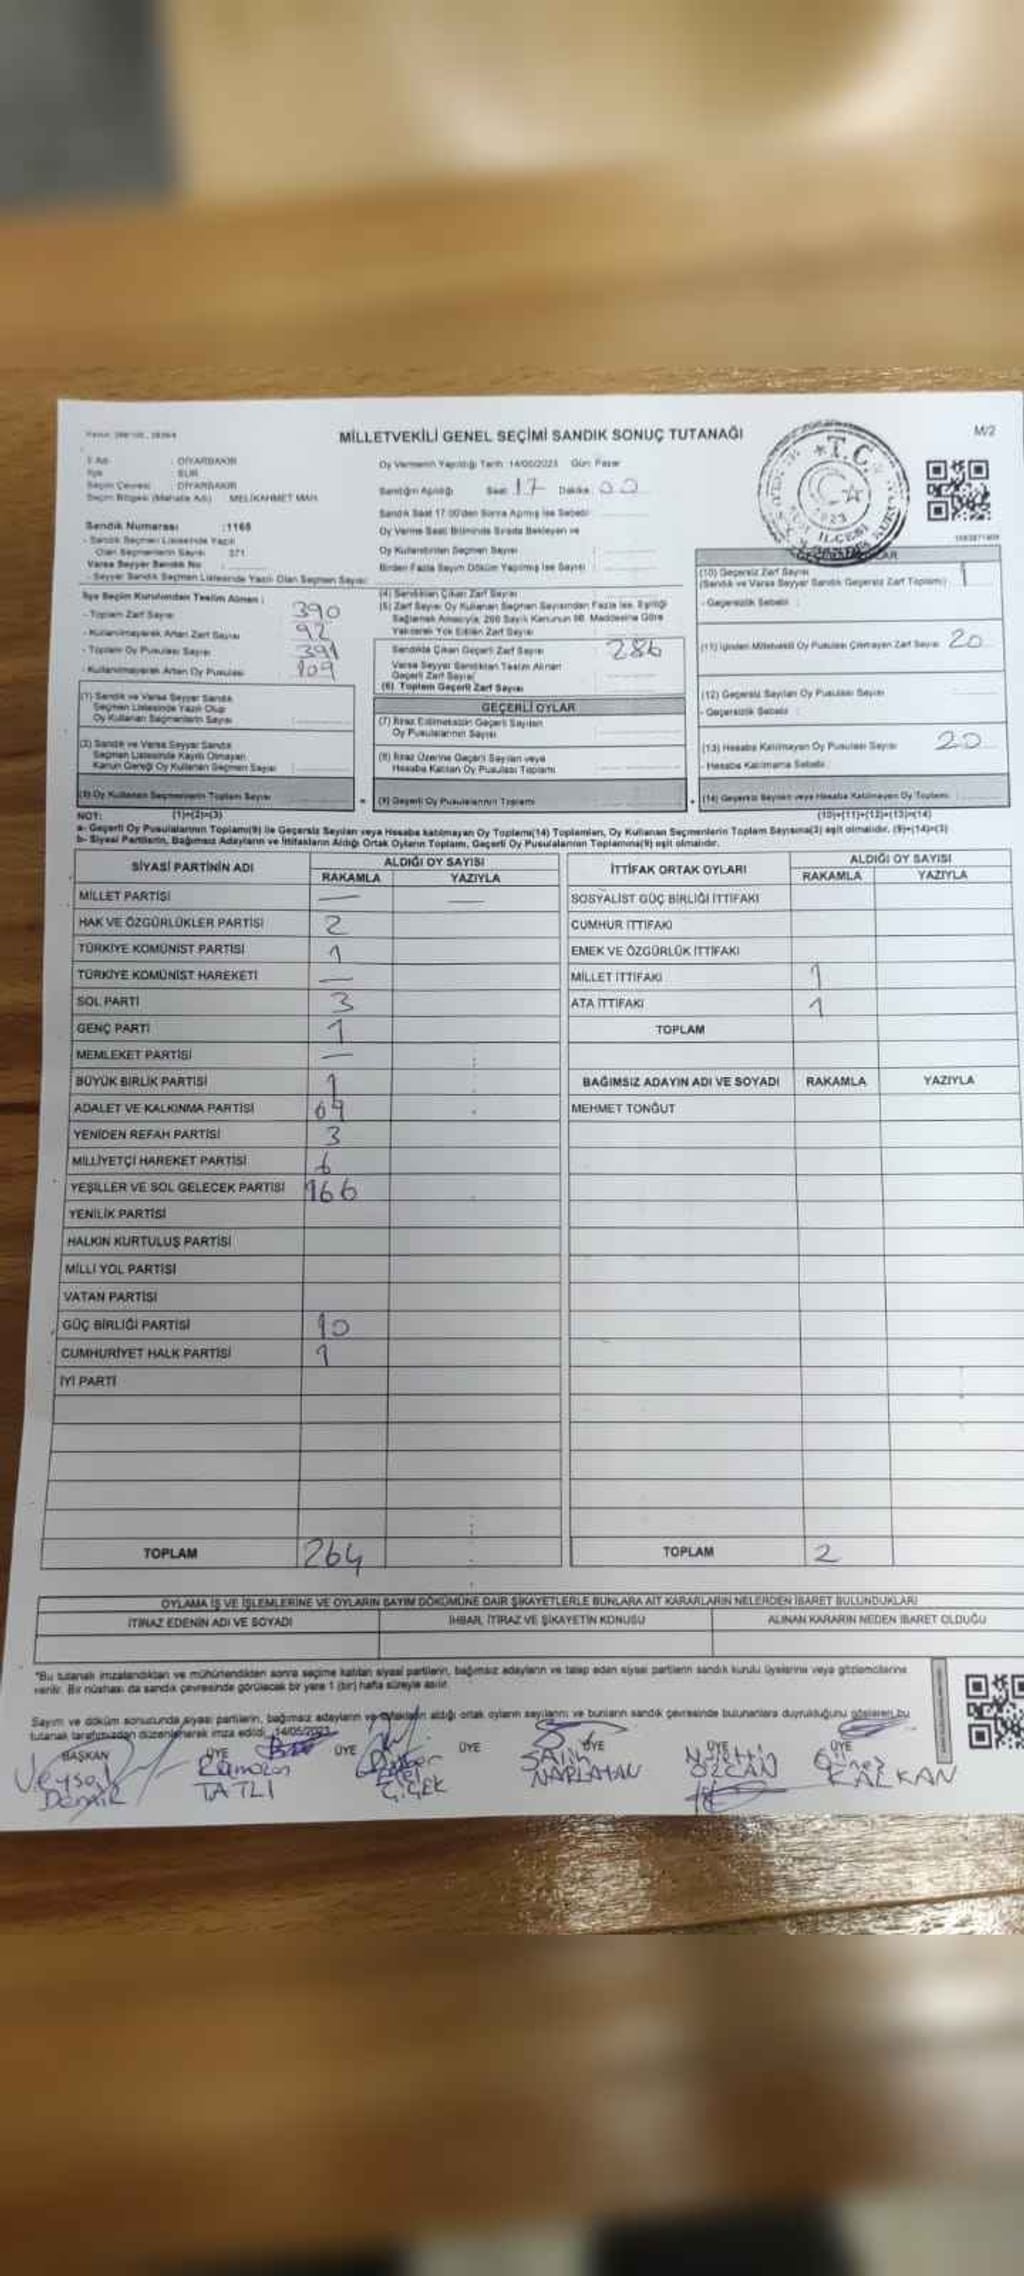 MİLLETVEKİLİ GENEL SEÇİMİ SANDIK SONUÇ TUTANAĞI
M/2
İl Adı : DİYARBAKIR
İlçe : SUR
Seçim Çevresi : DİYARBAKIR
Seçim Bölgesi (Mahalle Adı) : MELİKAHMET MAH.
Sandık Numarası :1168
- Sandık Seçmen Listesinde Yazılı
Olan Seçmenlerin Sayısı : 371
Varsa Seyyar Sandık No :
- Seyyar Sandık Seçmen Listesinde Yazılı Olan Seçmen Sayısı:
Oy Vermenin Yapıldığı Tarih: 14/05/2023 Gün: Pazar
Sandığın Açıldığı Saat 17 Dakika 00
Sandık Saat 17.00'den Sonra Açılmış İse Sebebi:
Oy Verme Saati Bitiminde Sırada Bekleyen ve
Oy Kullandırılan Seçmen Sayısı :
Birden Fazla Sayım Döküm Yapılmış İse Sayısı :
T.C.
İLÇESİ
İlçe Seçim Kurulundan Teslim Alınan :
- Toplam Zarf Sayısı 390
- Kullanılmayarak Artan Zarf Sayısı 92
- Toplam Oy Pusulası Sayısı 391
- Kullanılmayarak Artan Oy Pusulası 109
(1) Sandık ve Varsa Seyyar Sandık
Seçmen Listesinde Yazılı Olup
Oy Kullanan Seçmenlerin Sayısı
(2) Sandık ve Varsa Seyyar Sandık
Seçmen Listesinde Kayıtlı Olmayan
Kanun Gereği Oy Kullanan Seçmen Sayısı
(3) Oy Kullanan Seçmenlerin Toplam Sayısı
(4) Sandıktan Çıkan Zarf Sayısı
(5) Zarf Sayısı Oy Kullanan Seçmen Sayısından Fazla İse, Eşitliği
Sağlamak Amacıyla, 298 Sayılı Kanunun 98. Maddesine Göre
Yakılarak Yok Edilen Zarf Sayısı
Sandıkta Çıkan Geçerli Zarf Sayısı 286
Varsa Seyyar Sandıktan Teslim Alınan
Geçerli Zarf Sayısı
(6) Toplam Geçerli Zarf Sayısı
GEÇERLİ OYLAR
(7) İtiraz Edilmeksizin Geçerli Sayılan
Oy Pusulalarının Sayısı
(8) İtiraz Üzerine Geçerli Sayılan veya
Hesaba Katılan Oy Pusulası Toplamı
(9) Geçerli Oy Pusulalarının Toplamı
(10) Geçersiz Zarf Sayısı
(Sandık ve Varsa Seyyar Sandık Geçersiz Zarf Toplamı)
- Geçersizlik Sebebi :
(11) İçinden Milletvekili Oy Pusulası Çıkmayan Zarf Sayısı 20
(12) Geçersiz Sayılan Oy Pusulası Sayısı
- Geçersizlik Sebebi :
(13) Hesaba Katılmayan Oy Pusulası Sayısı 20
- Hesaba Katılmama Sebebi :
(14) Geçersiz Sayılan veya Hesaba Katılmayan Oy Toplamı
NOT: (1)+(2)=(3) (10)+(11)+(12)+(13)=(14)
a- Geçerli Oy Pusulalarının Toplamı(9) ile Geçersiz Sayılan veya Hesaba katılmayan Oy Toplamı(14) Toplamları, Oy Kullanan Seçmenlerin Toplam Sayısına(3) eşit olmalıdır. (9)+(14)=(3)
b- Siyasi Partilerin, Bağımsız Adayların ve İttifakların Aldığı Ortak Oyların Toplamı, Geçerli Oy Pusulalarının Toplamına(9) eşit olmalıdır.
SİYASİ PARTİNİN ADI ALDIĞI OY SAYISI
RAKAMLA YAZIYLA
MİLLET PARTİSİ — —
HAK VE ÖZGÜRLÜKLER PARTİSİ 2
TÜRKİYE KOMÜNİST PARTİSİ 1
TÜRKİYE KOMÜNİST HAREKETİ —
SOL PARTİ 3
GENÇ PARTİ 1
MEMLEKET PARTİSİ —
BÜYÜK BİRLİK PARTİSİ 1
ADALET VE KALKINMA PARTİSİ 69
YENİDEN REFAH PARTİSİ 3
MİLLİYETÇİ HAREKET PARTİSİ 6
YEŞİLLER VE SOL GELECEK PARTİSİ 166
YENİLİK PARTİSİ
HALKIN KURTULUŞ PARTİSİ
MİLLİ YOL PARTİSİ
VATAN PARTİSİ
GÜÇ BİRLİĞİ PARTİSİ 10
CUMHURİYET HALK PARTİSİ 1
İYİ PARTİ
TOPLAM 264
İTTİFAK ORTAK OYLARI ALDIĞI OY SAYISI
RAKAMLA YAZIYLA
SOSYALİST GÜÇ BİRLİĞİ İTTİFAKI
CUMHUR İTTİFAKI
EMEK VE ÖZGÜRLÜK İTTİFAKI
MİLLET İTTİFAKI 1
ATA İTTİFAKI 1
TOPLAM
BAĞIMSIZ ADAYIN ADI VE SOYADI RAKAMLA YAZIYLA
MEHMET TONĞUT
TOPLAM 2
OYLAMA İŞ VE İŞLEMLERİNE VE OYLARIN SAYIM DÖKÜMÜNE DAİR ŞİKAYETLERLE BUNLARA AİT KARARLARIN NELERDEN İBARET BULUNDUKLARI
İTİRAZ EDENİN ADI VE SOYADI İHBAR, İTİRAZ VE ŞİKAYETİN KONUSU ALINAN KARARIN NEDEN İBARET OLDUĞU
*Bu tutanak imzalandıktan ve mühürlendikten sonra seçime katılan siyasi partilerin, bağımsız adayların ve talep eden siyasi partilerin sandık kurulu üyelerine veya gözlemcilerine
verilir. Bir nüshası da sandık çevresinde görülecek bir yere 1 (bir) hafta süreyle asılır.
Sayım ve döküm sonucunda siyasi partilerin, bağımsız adayların ve ittifakların aldığı ortak oyların sayılarını ve bunların sandık çevresinde bulunanlara duyrukduğunu gösteren bu
tutanak tarafımızdan düzenlenerek imza edildi. 14/05/2023
BAŞKAN ÜYE ÜYE ÜYE ÜYE ÜYE ÜYE
Veysel Demir
Ramazan TATLI
ÇİÇEK
SALİH NARLATAN
ÖZCAN
Ömer KALKAN